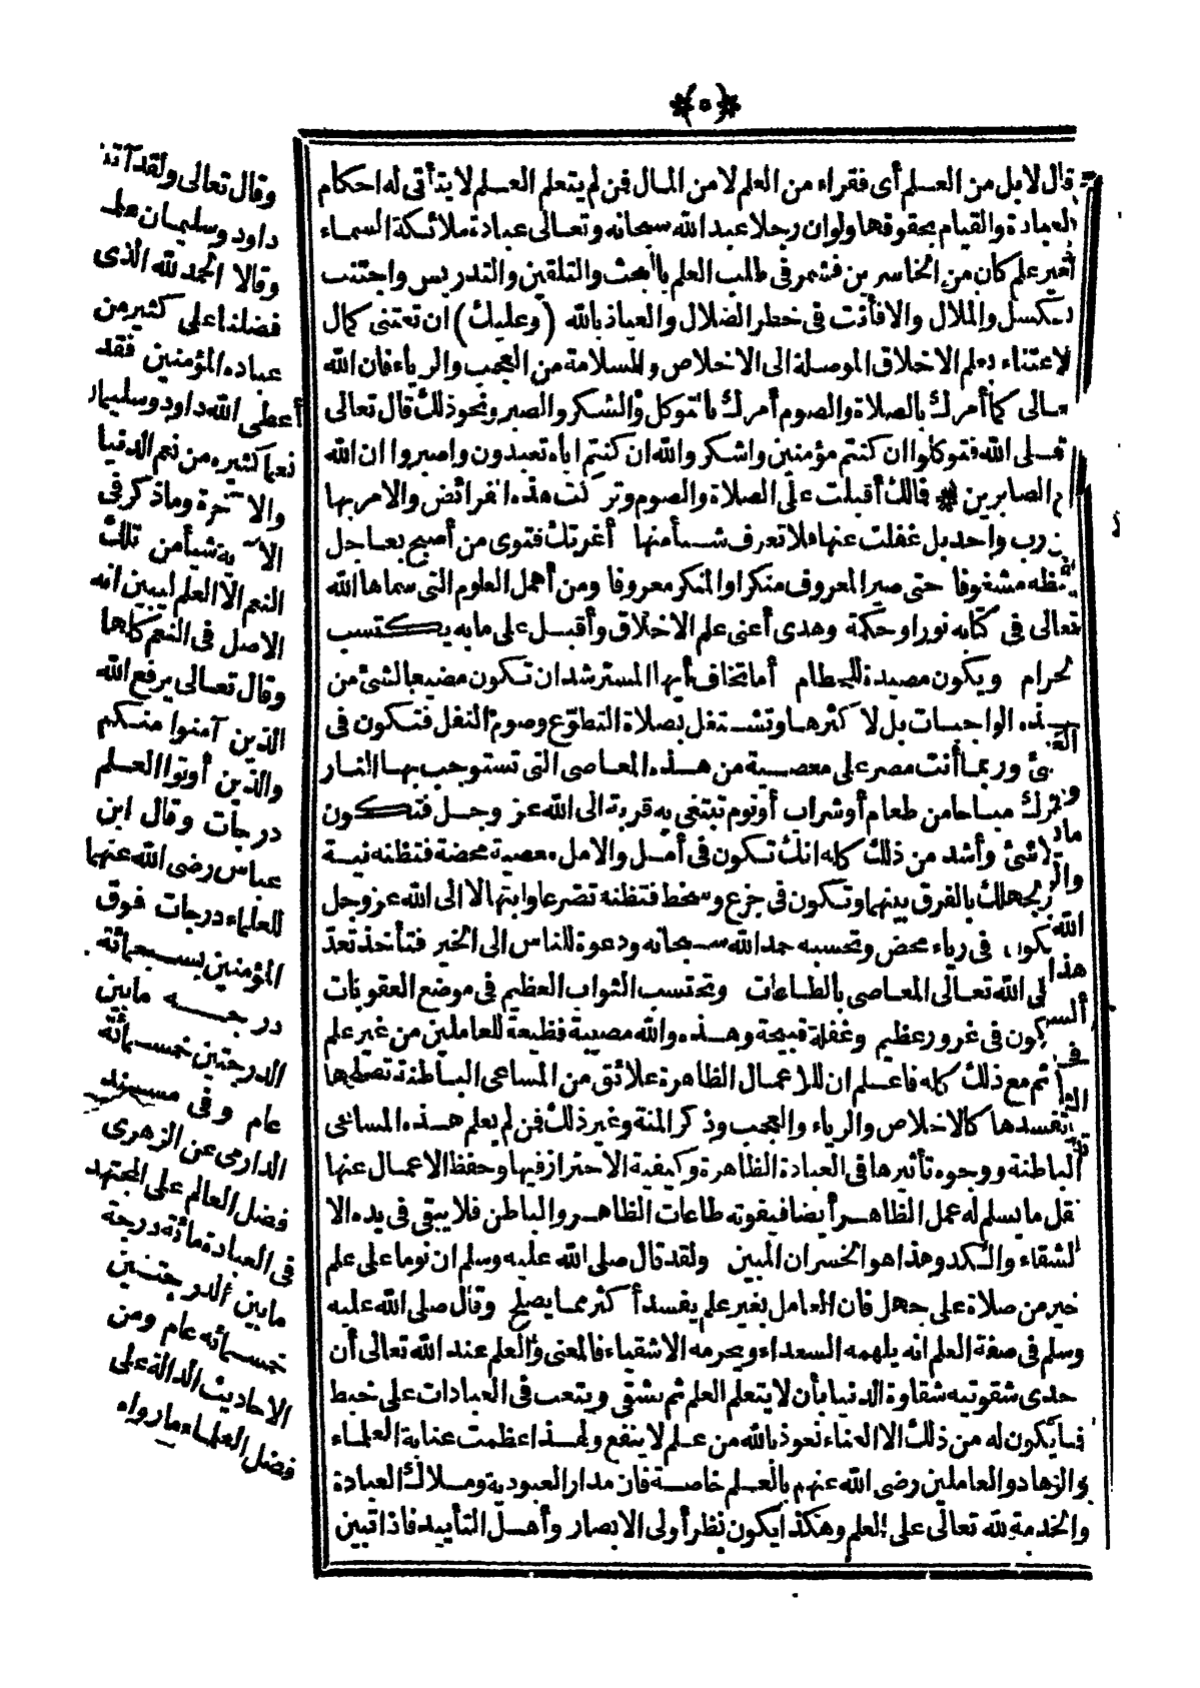 ﴿٥﴾
قال لا بل من العلم أى فقراء من العلم لا من المال فمن لم يتعلم العلم لا يتأتى له احكام
العبادة والقيام بحقوقها ولو ان رجلا عبد الله سبحانه وتعالى عبادة ملائكة السماء
بغير علم كان من الخاسرين فشمر فى طلب العلم بالبحث والتلقين والتدريس واجتنب
الكسل والملال والا فأنت فى خطر الضلال والعياذ بالله (وعليك) ان تعتنى كمال
الاعتناء بعلم الاخلاق الموصلة الى الاخلاص والسلامة من العجب والرياء فان الله
تعالى كما أمرك بالصلاة والصوم أمرك بالتوكل والشكر والصبر ونحو ذلك قال تعالى
وعلى الله فتوكلوا ان كنتم مؤمنين واشكروا الله ان كنتم اياه تعبدون واصبروا ان الله
مع الصابرين فمالك أقبلت على الصلاة والصوم وتركت هذه الفرائض والامر بها
من رب واحد بل غفلت عنها فلا تعرف شيأ منها أغرتك فتوى من أصبح بعاجل
حظه مشغوفا حتى صير المعروف منكرا والمنكر معروفا ومن أهمل العلوم التى سماها الله
تعالى فى كتابه نورا وحكمة وهدى أعنى علم الاخلاق وأقبل على ما به يكتسب
الحرام ويكون مصيدة للحطام أما تخاف أيها المسترشد ان تكون مضيعا لشئ من
هذه الواجبات بل لا كثرها وتشتغل بصلاة التطوع وصوم النفل فتكون فى
شئ وربما أنت مصر على معصية من هذه المعاصى التى تستوجب بها النار
وتترك مباحا من طعام أو شراب أو نوم تبتغى به قربة الى الله عز وجل فتكون
فى لا شئ وأشد من ذلك كله انك تكون فى أمل والامل معصية محضة فتظنه نية
خير لجهلك بالفرق بينهما وتكون فى جزع وسخط فتظنه تضرعا وابتهالا الى الله عز وجل
وتكون فى رياء محض وتحسبه حمد الله سبحانه ودعوة للناس الى الخير فتأخذ تعد
على الله تعالى المعاصى بالطاعات وتحتسب الثواب العظيم فى موضع العقوبات
فتكون فى غرور عظيم وغفلة قبيحة وهذه والله مصيبة فظيعة للعاملين من غير علم
ثم مع ذلك كله فاعلم ان للاعمال الظاهرة علائق من المساعى الباطنة تصلحها
وتفسدها كالاخلاص والرياء والعجب وذكر المنة وغير ذلك فمن لم يعلم هذه المساعى
الباطنة ووجوه تأثيرها فى العبادة الظاهرة وكيفية الاحتراز فيها وحفظ الاعمال عنها
فقل ما يسلم له عمل الظاهر أيضا فيفوته طاعات الظاهر والباطن فلا يبقى فى يده الا
الشقاء والكد وهذا هو الخسران المبين ولقد قال صلى الله عليه وسلم ان نوما على علم
خير من صلاة على جهل فان العامل بغير علم يفسد أكثر مما يصلح وقال صلى الله عليه
وسلم فى صفة العلم انه يلهمه السعداء ويحرمه الاشقياء فالمعنى والعلم عند الله تعالى أن
احدى شقوتيه شقاوة الدنيا بأن لا يتعلم العلم ثم يشقى ويتعب فى العبادات على خبط
فما يكون له من ذلك الا العناء نعوذ بالله من علم لا ينفع ولهذا عظمت عناية العلماء
والزهاد والعاملين رضى الله عنهم بالعلم خاصة فان مدار العبودية وملاك العبادة
والخدمة لله تعالى على العلم وهكذا يكون نظر أولى الابصار وأهل التأييد فاذا تبين
وقال تعالى ولقد آتينا
داود وسليمان علما
وقالا الحمد لله الذى
فضلنا على كثير من
عباده المؤمنين فقد
أعطى الله داود وسليمان
نعما كثيره من نعم الدنيا
والا خرة وما ذكر فى
الا ية شيأ من تلك
النعم الا العلم ليبين انه
الاصل فى النعم كلها
وقال تعالى يرفع الله
الذين آمنوا منكم
والذين أوتوا العلم
درجات وقال ابن
عباس رضى الله عنهما
للعلماء درجات فوق
المؤمنين بسبعمائة
درجه ما بين
الدرجتين خمسمائة
عام وفى مسند
الدارمى عن الزهرى
فضل العالم على المجتهد
فى العبادة مائة درجة
ما بين الدرجتين
خمسمائه عام ومن
الاحاديث الدالة على
فضل العلماء ما رواه